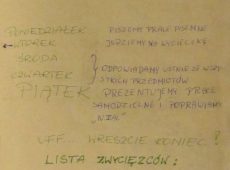 PONIEDZIAŁEK PISZEMY PRACE PISEMNE
WTOREK JEDZIEMY NA WYCIECZKĘ
ŚRODA ODPOWIADAMY USTNIE ZE WSZY-
CZWARTEK STKICH PRZEDMIOTÓW
PIĄTEK PREZENTUJEMY PRACE
SAMODZIELNE I POPRAWIAMY
UFF... WRESZCIE KONIEC!
LISTA ZWYCIĘZCÓW: